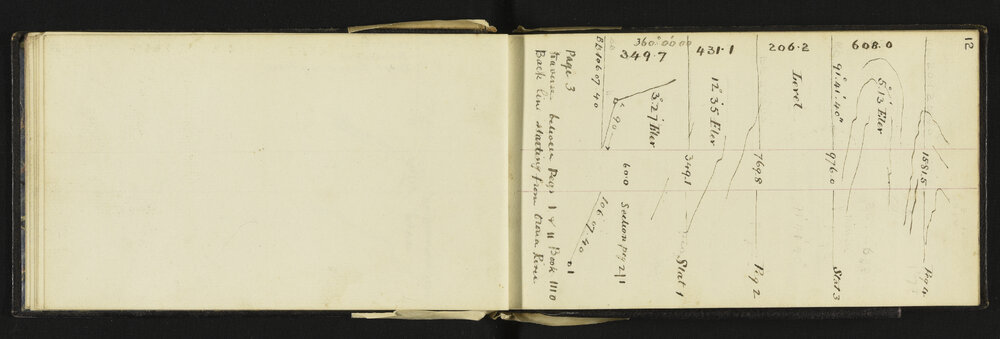 12
608.0
206.2
431.1
360° 00' 00
349.7
1581.5
Peg 4
5°13' Elev
91° 41' 40"
976.0
Stat 3
Level
769.8
Peg 2
12° 35 Elev
349.1
Stat 1
3° 27' Elev
60.0
Section peg 2/1
B B 106 07 40
90
106 07 40
Page 3
Traverse between Pegs 1 & 11 Book 1110
Back line starting from River